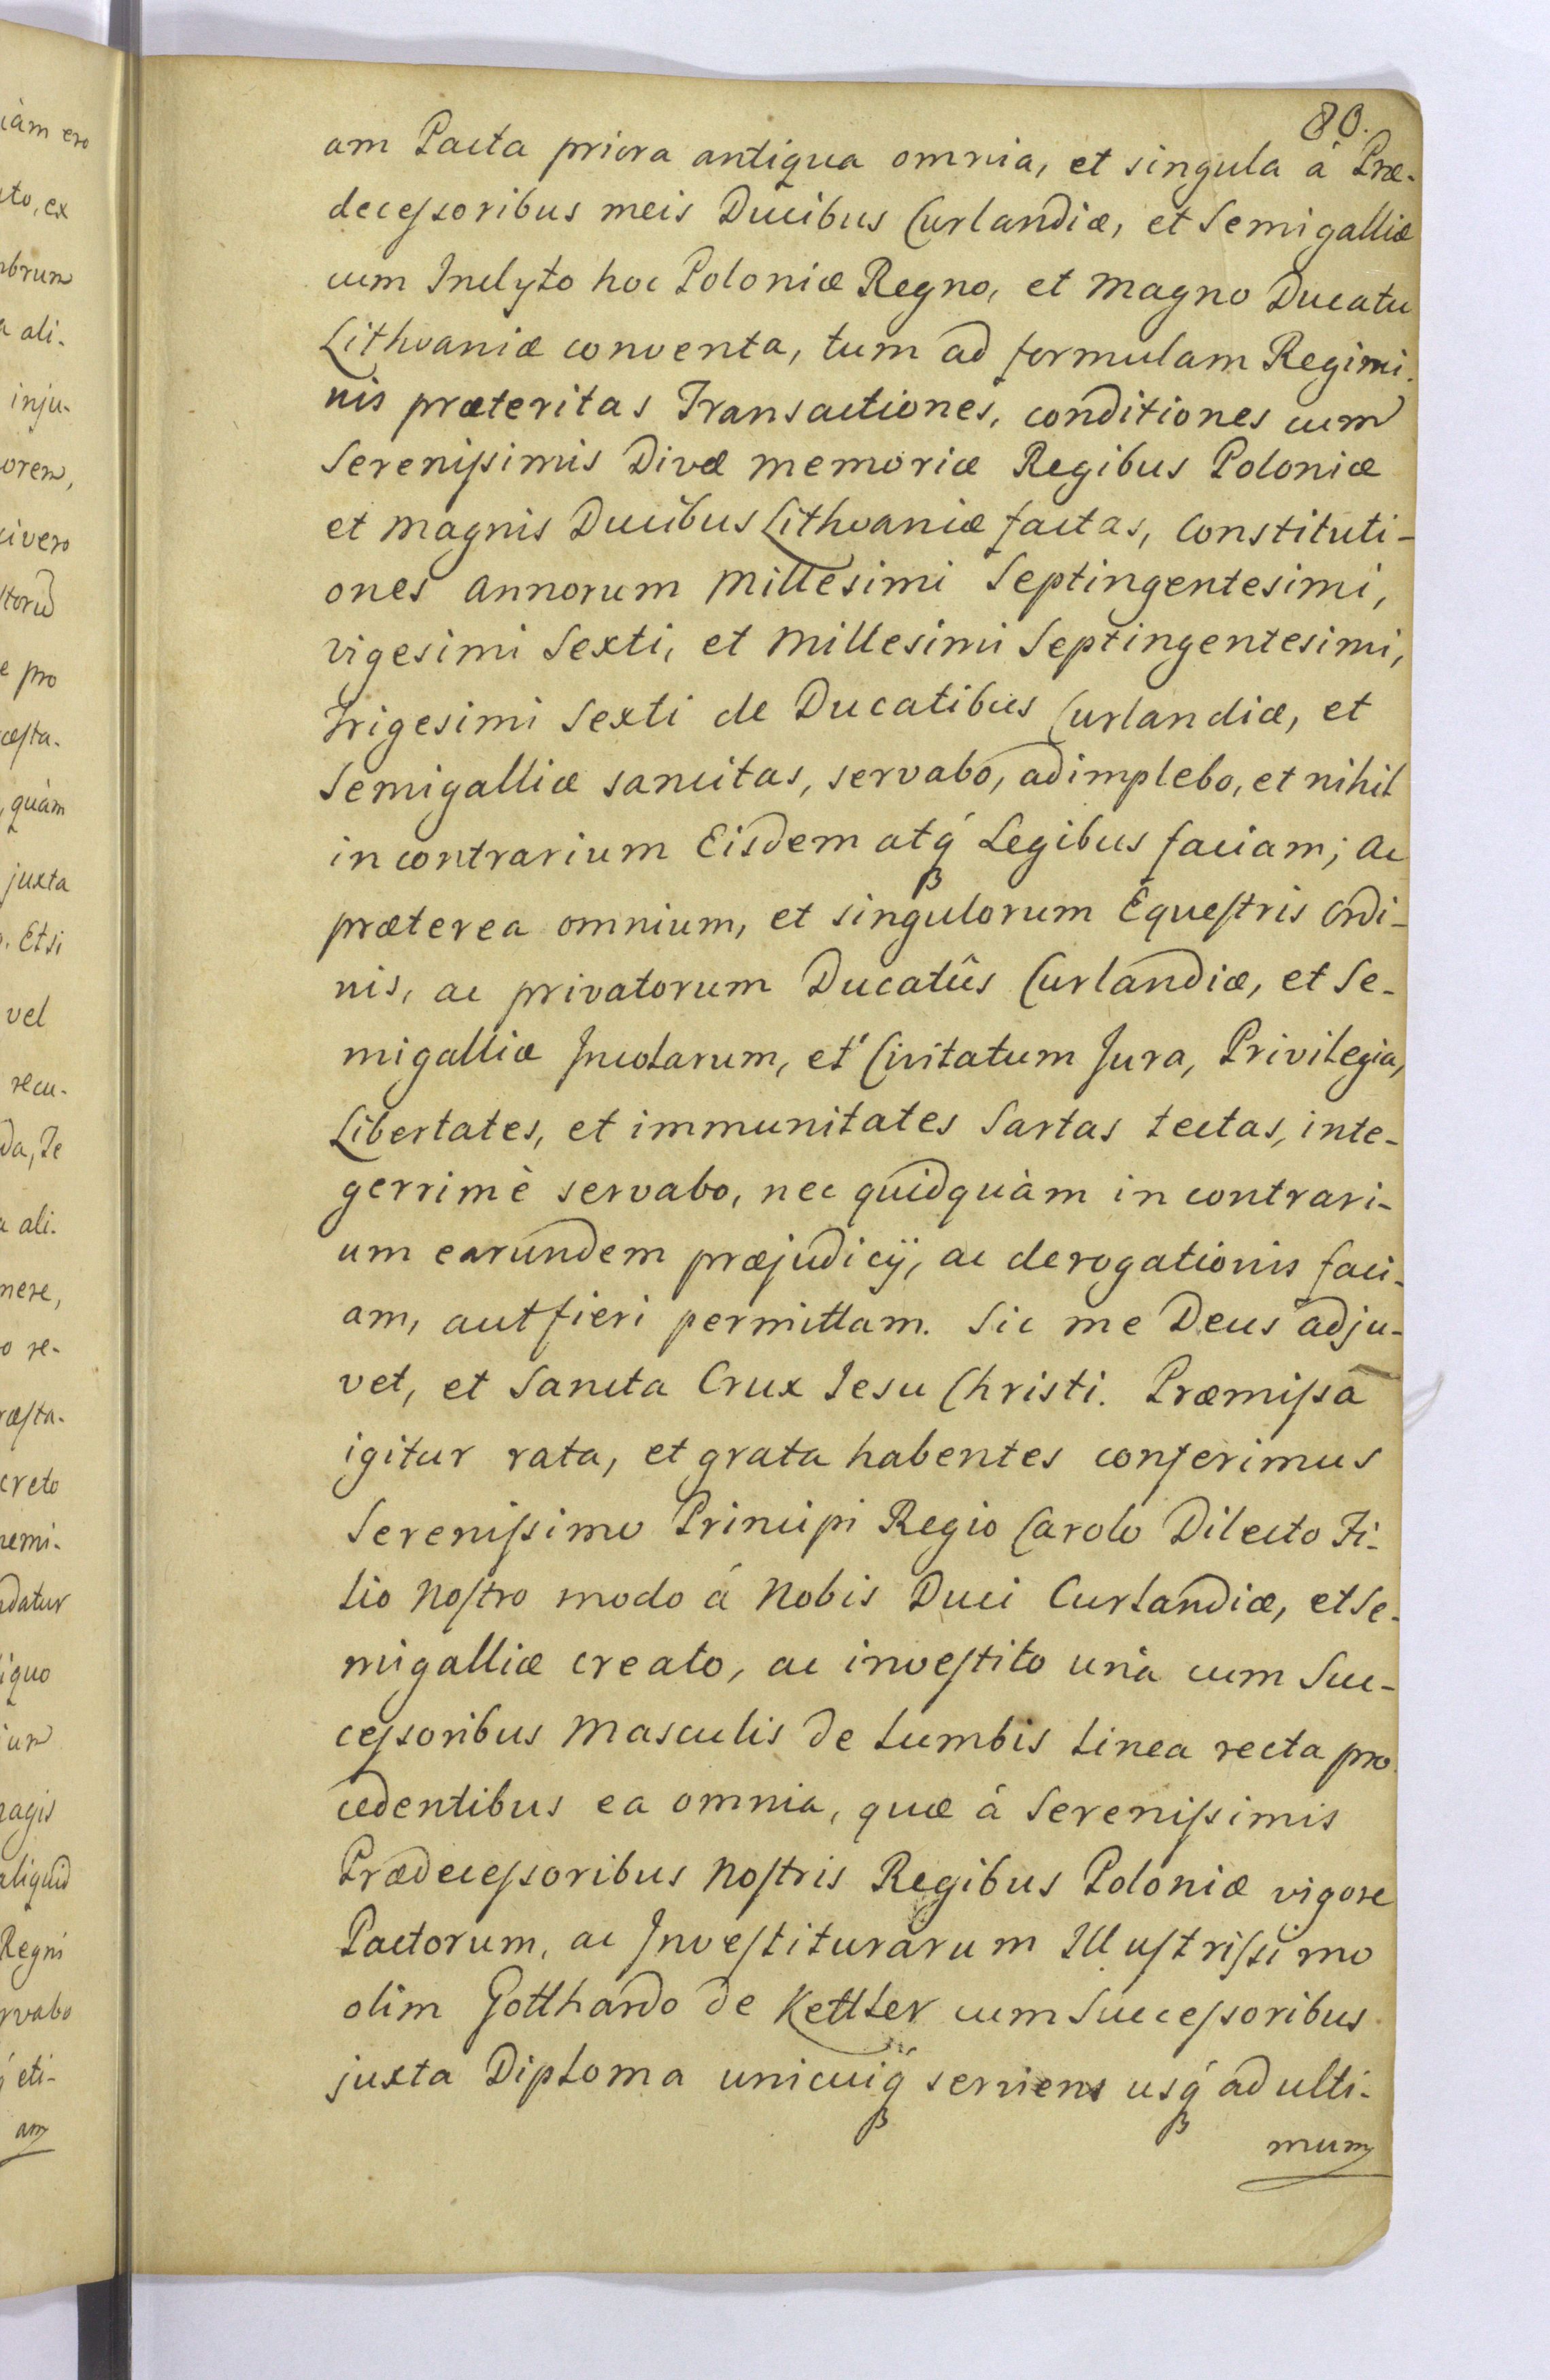 80.
am Pacta priora antiqua omnia, et singula á Præ-
decessoribus meis Ducibus Curlandiæ, et Semigalliæ
cum Inclyto hoc Poloniæ Regno, et magno Ducatu
Lithvaniæ conventa, tum ad formulam Regimi-
nis præteritas Transactiones, conditiones cum
Serenissimis Divæ memoriæ Regibus Poloniæ
et magnis Ducibus Lithvaniæ factas, Constituti-
ones Annorum Millesimi Septingentesimi,
vigesimi Sexti, et Millesimi Septingentesimi,
Trigesimi Sexti de Ducatibus Curlandiæ, et
Semigalliæ sancitas, servabo, adimplebo, et nihil
in contrarium Eisdem atq́ Legibus faciam; ac
præterea omnium, et singulorum Equestris Ordi-
nis, ac privatorum Ducatûs Curlandiæ, et Se-
migalliæ Incolarum, et Civitatum Jura, Privilegia,
Libertates, et immunitates Sartas tectas, inte-
gerrimè servabo, nec quidquàm in contrari-
um earundem præjudicÿ, ac derogationis faci-
am, aut fieri permittam. Sic me Deus adju-
vet, et Sancta Crux Jesu Christi. Præmissa
igitur rata, et grata habentes conferimus
Serenissimo Principi Regio Carolo Dilecto Fi-
lio Nostro modo á Nobis Duci Curlandiæ, et Se-
migalliæ creato, ac investito unà cum Suc-
cessoribus Masculis de Lumbis Linea recta pro
cedentibus ea omnia, quæ á Serenissimis
Prædecessoribus Nostris Regibus Poloniæ vigore
Pactorum, ac Investiturarum Illustrissimo
olim Gotthardo de Kettler cum Successoribus
juxta Diploma unicuiq́ serviens usq́ ad ulti-
mum